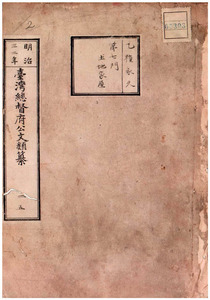 明治
三二年
臺灣總督府公文類纂
一五
乙種永久
第七門
土地家屋
2